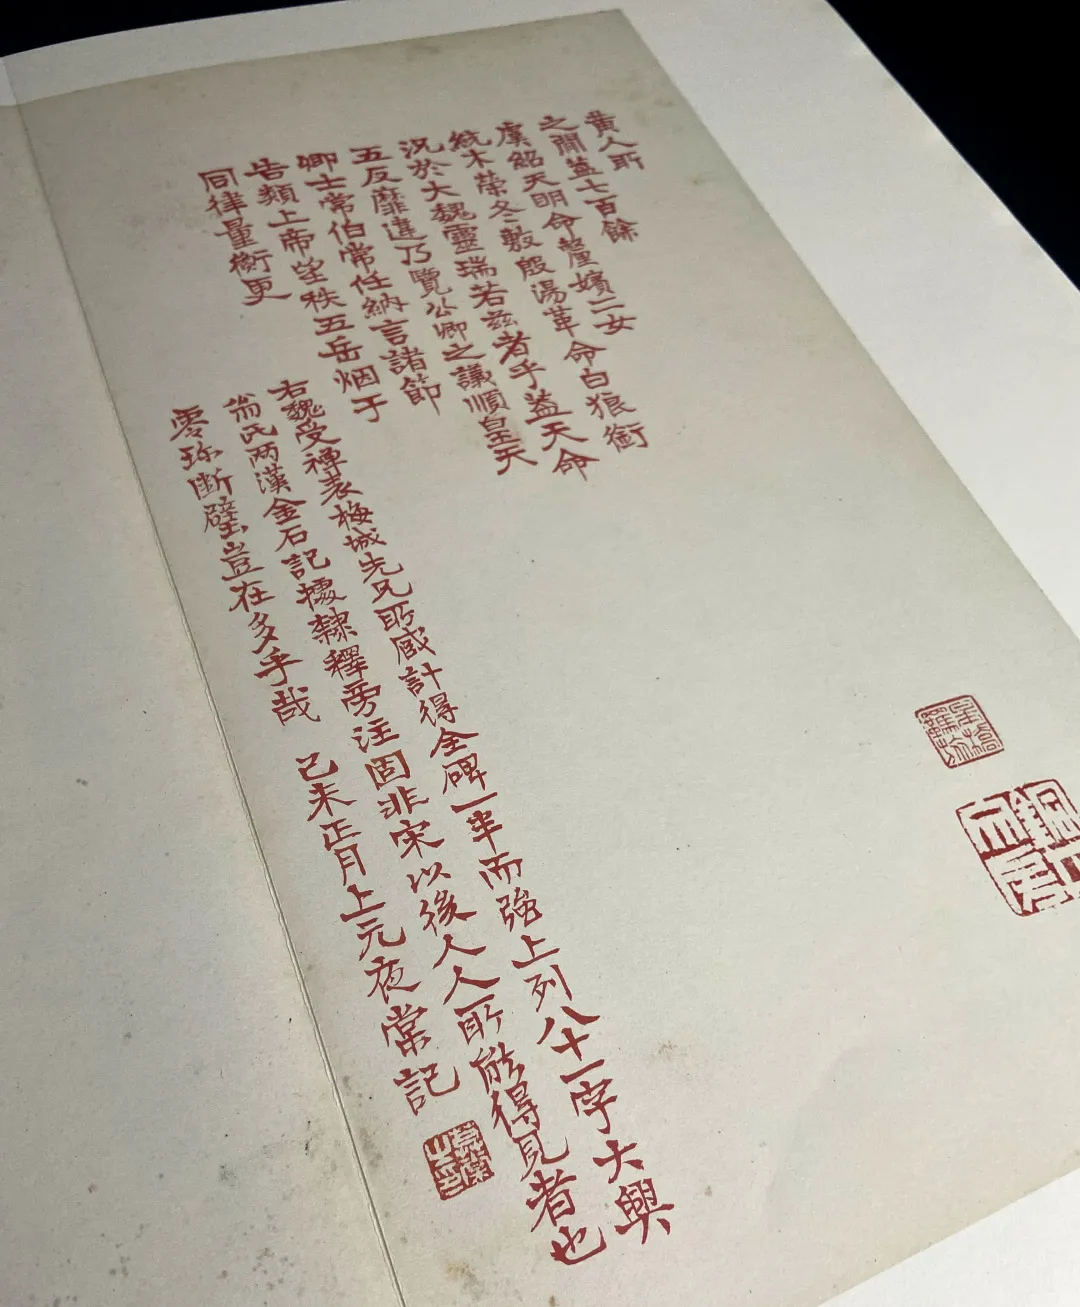 黄人所
之間蓋七百餘
虞紹天明命釐嬪二女
統木榮冬敷殷湯革命白狼銜
況於大魏靈瑞若茲者乎蓋天命
五反靡違乃覽公卿之議順皇天
卿士常伯常任納言諸節
告類上帝望秩五岳烟于
同律量衡更
右魏受禅表梅城先兄所藏計得全碑一半而強上列八十一字大興
翁氏两漢金石記據隸釋旁注固非宋以後人人所能得見者也
零珎断璧豈在多乎哉 己未正月上元夜常記